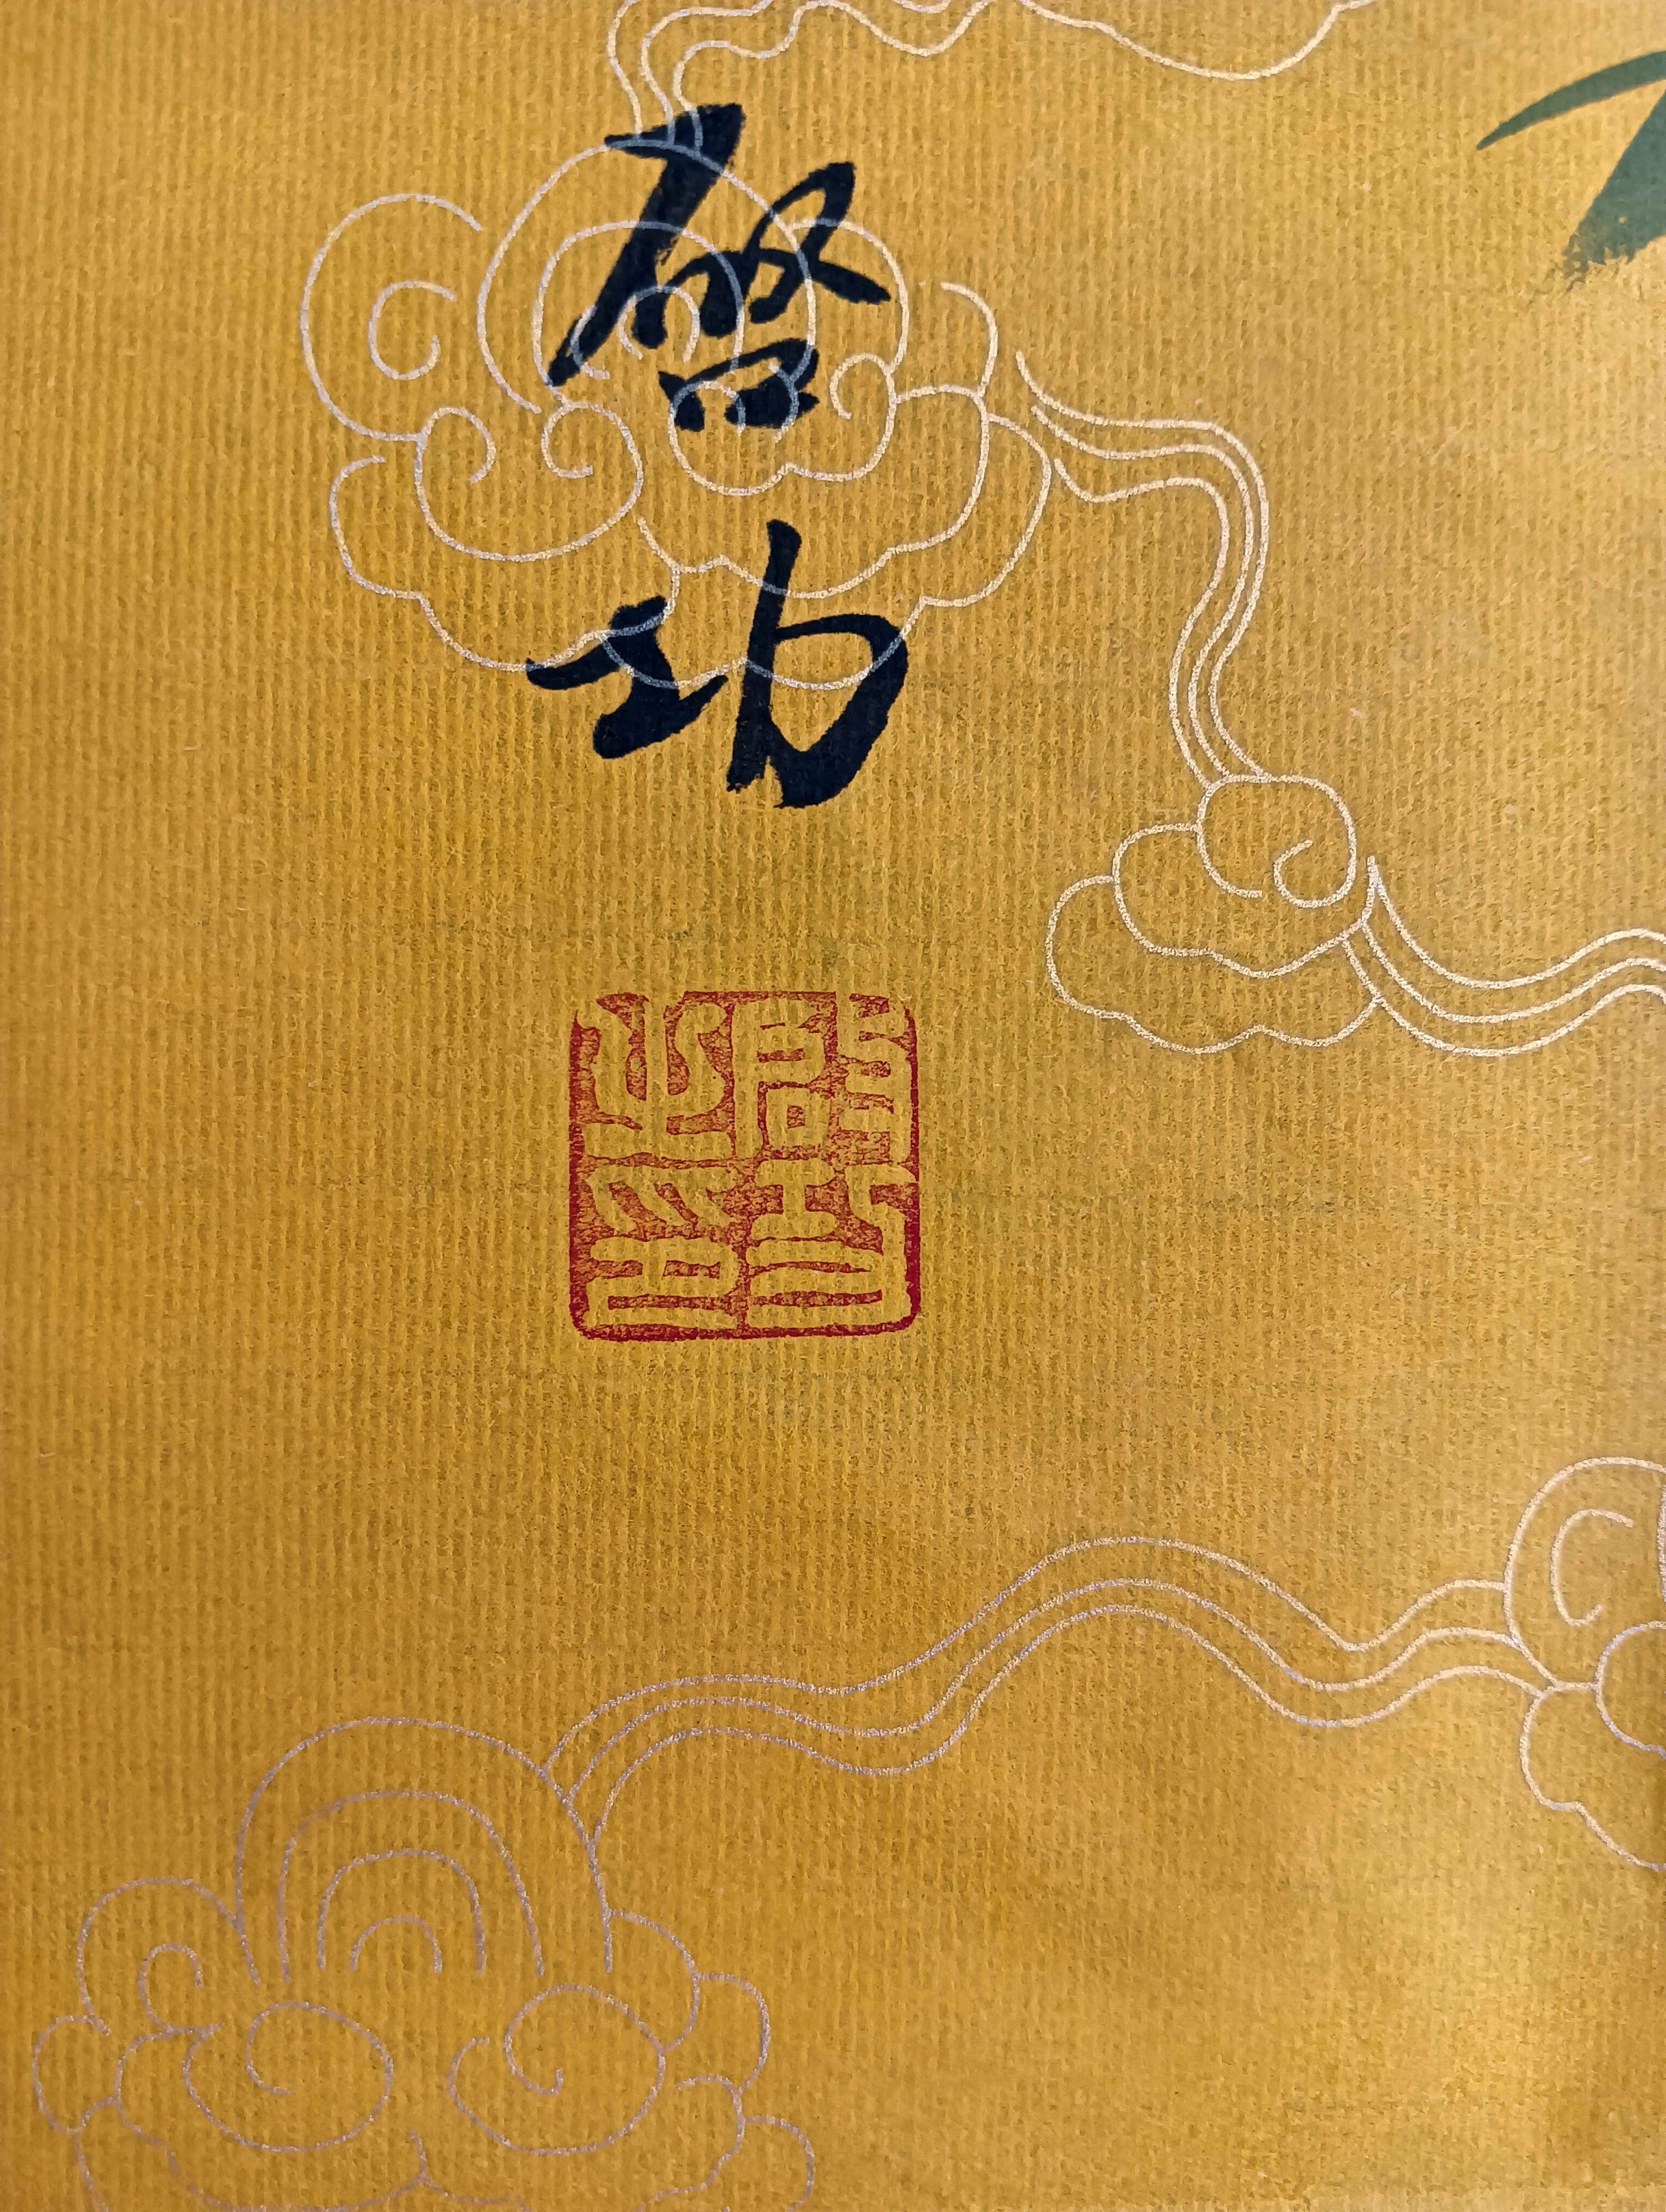 啓功
啓功
之印